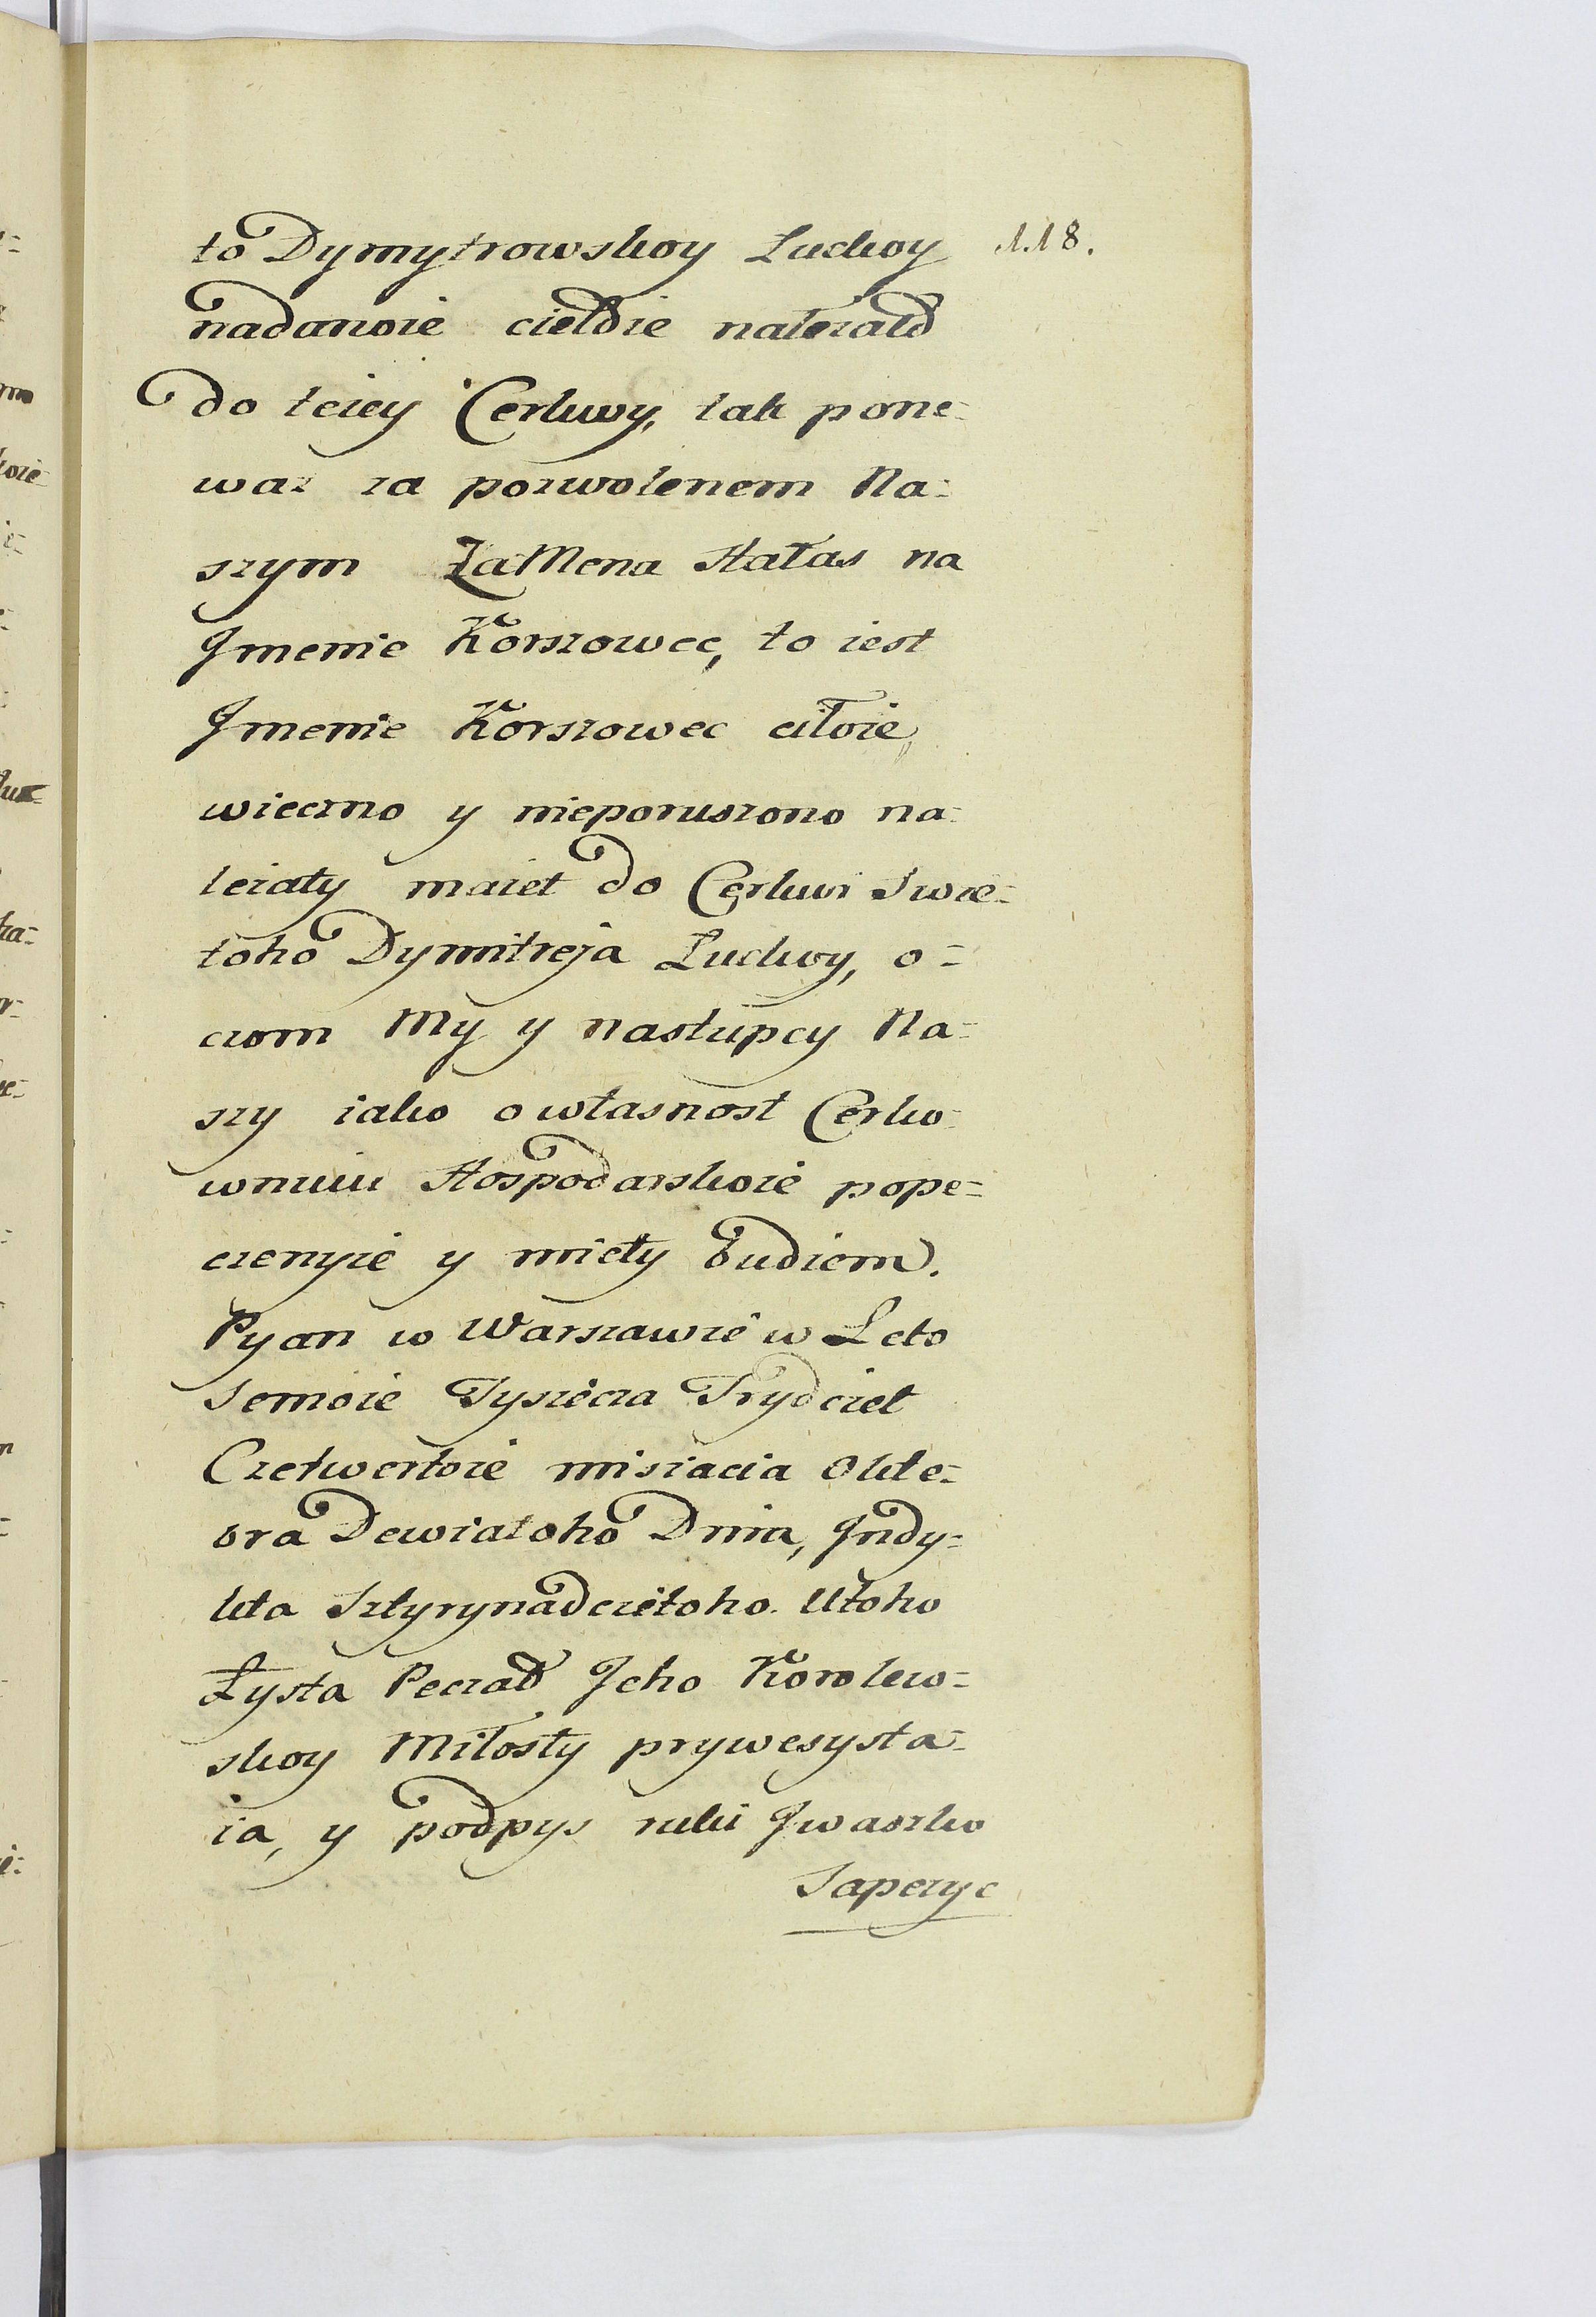 to Dymytrowskoy Luckoy 118.
nadanoie cieloie nateżało
do teiey Cerkwy, tak pone=
waż za pozwolenem Na=
szym ZaMena stałas na
Jmenie Korszowec, to iest
Jmenie Korszowec ciłoie,
wieczno y nieporuszono na=
leżaty maiet do Cerkwi Swie=
toho Dymitreja Luckoy, o=
czom My y nastupcy Na=
szy iako o własnost Cerko=
wnuiu Hospodarskoie pope=
czenyie y miety budiem.
Pyan w Warszawie w Leto
Semoie Tysiecza Trydciet
Czetwertoie misiacia Okte=
bra Dewiatoho Dnia, Jndy=
kta Sztyrynadcietoho. Utoho
Łysta Peczad Jeho Korolew=
skoy Miłosty prywesysta=
ia, y podpys ruki Jwaszko
Sapezyc